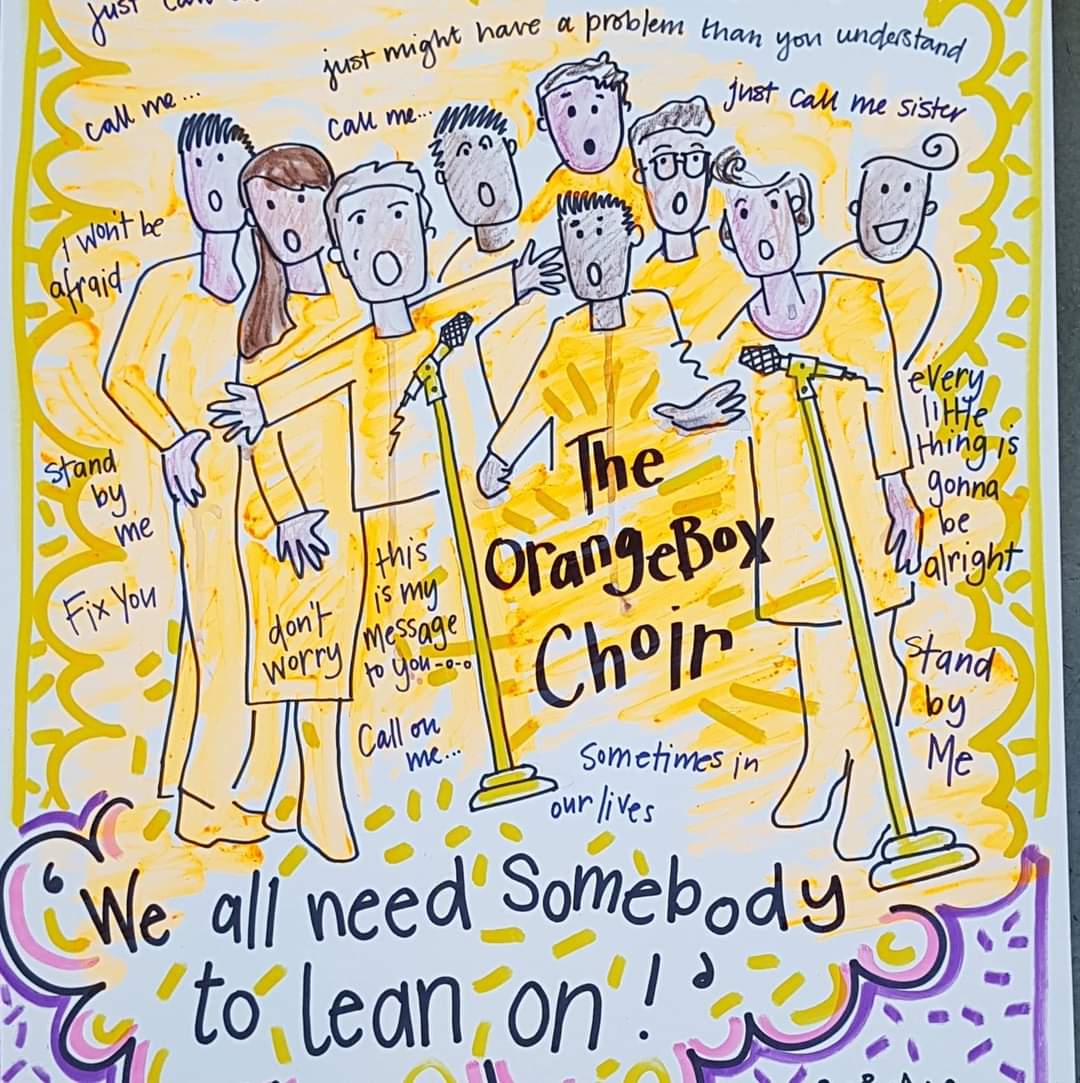 just
just might have a problem than you understand
call me...
call me...
just call me sister
I won't be
afraid
every
little
thing is
gonna
be
alright
Stand
by
me
Fix You
don't
worry
this
is my
message
to you-o-o
Call on
me...
The
OrangeBox
Choir
Stand
by
Me
Sometimes in
our lives
'We all need Somebody
to lean on!'